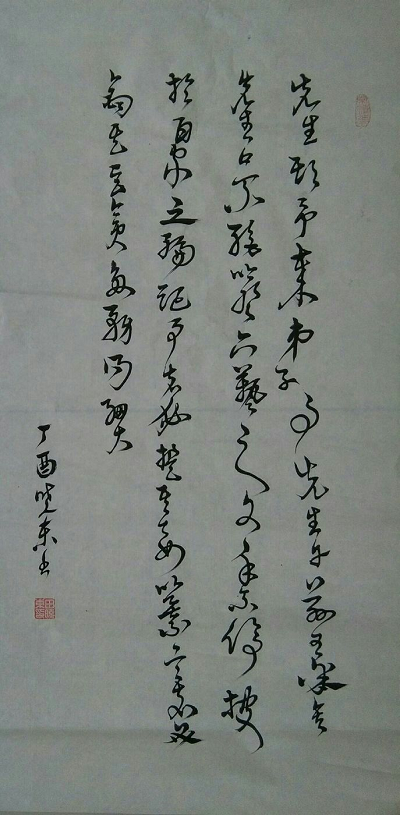 先生欺予哉弟子事先生于兹有年矣
先生口不絕吟於六藝之文手不停披
於百家之編記事者必提其要纂言者必
鈎其玄貪多務得細大
丁酉晓东书